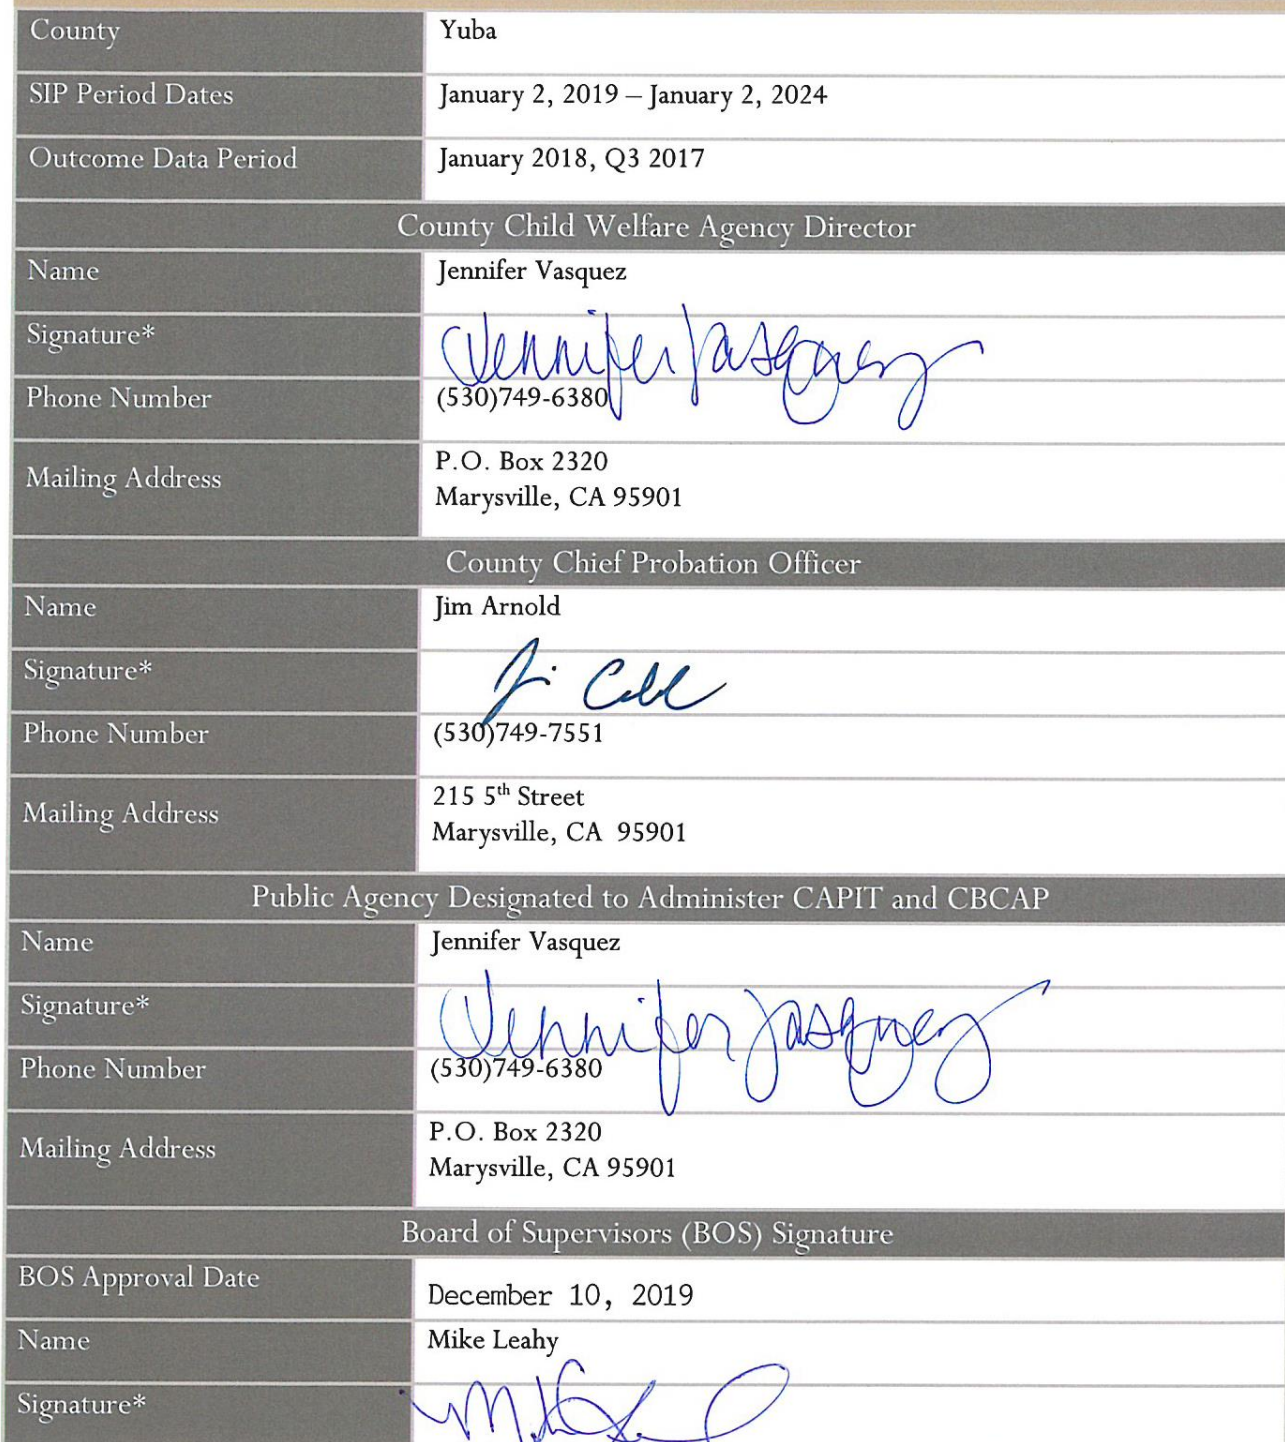 County Yuba
SIP Period Dates January 2, 2019 – January 2, 2024
Outcome Data Period January 2018, Q3 2017
County Child Welfare Agency Director
Name Jennifer Vasquez
Signature* Jennifer Vasquez
Phone Number (530)749-6380
Mailing Address
P.O. Box 2320
Marysville, CA 95901
County Chief Probation Officer
Name Jim Arnold
Signature*
Phone Number (530)749-7551
Mailing Address
215 5th Street
Marysville, CA 95901
Public Agency Designated to Administer CAPIT and CBCAP
Name Jennifer Vasquez
Signature* Jennifer Vasquez
Phone Number (530)749-6380
Mailing Address
P.O. Box 2320
Marysville, CA 95901
Board of Supervisors (BOS) Signature
BOS Approval Date December 10, 2019
Name Mike Leahy
Signature*